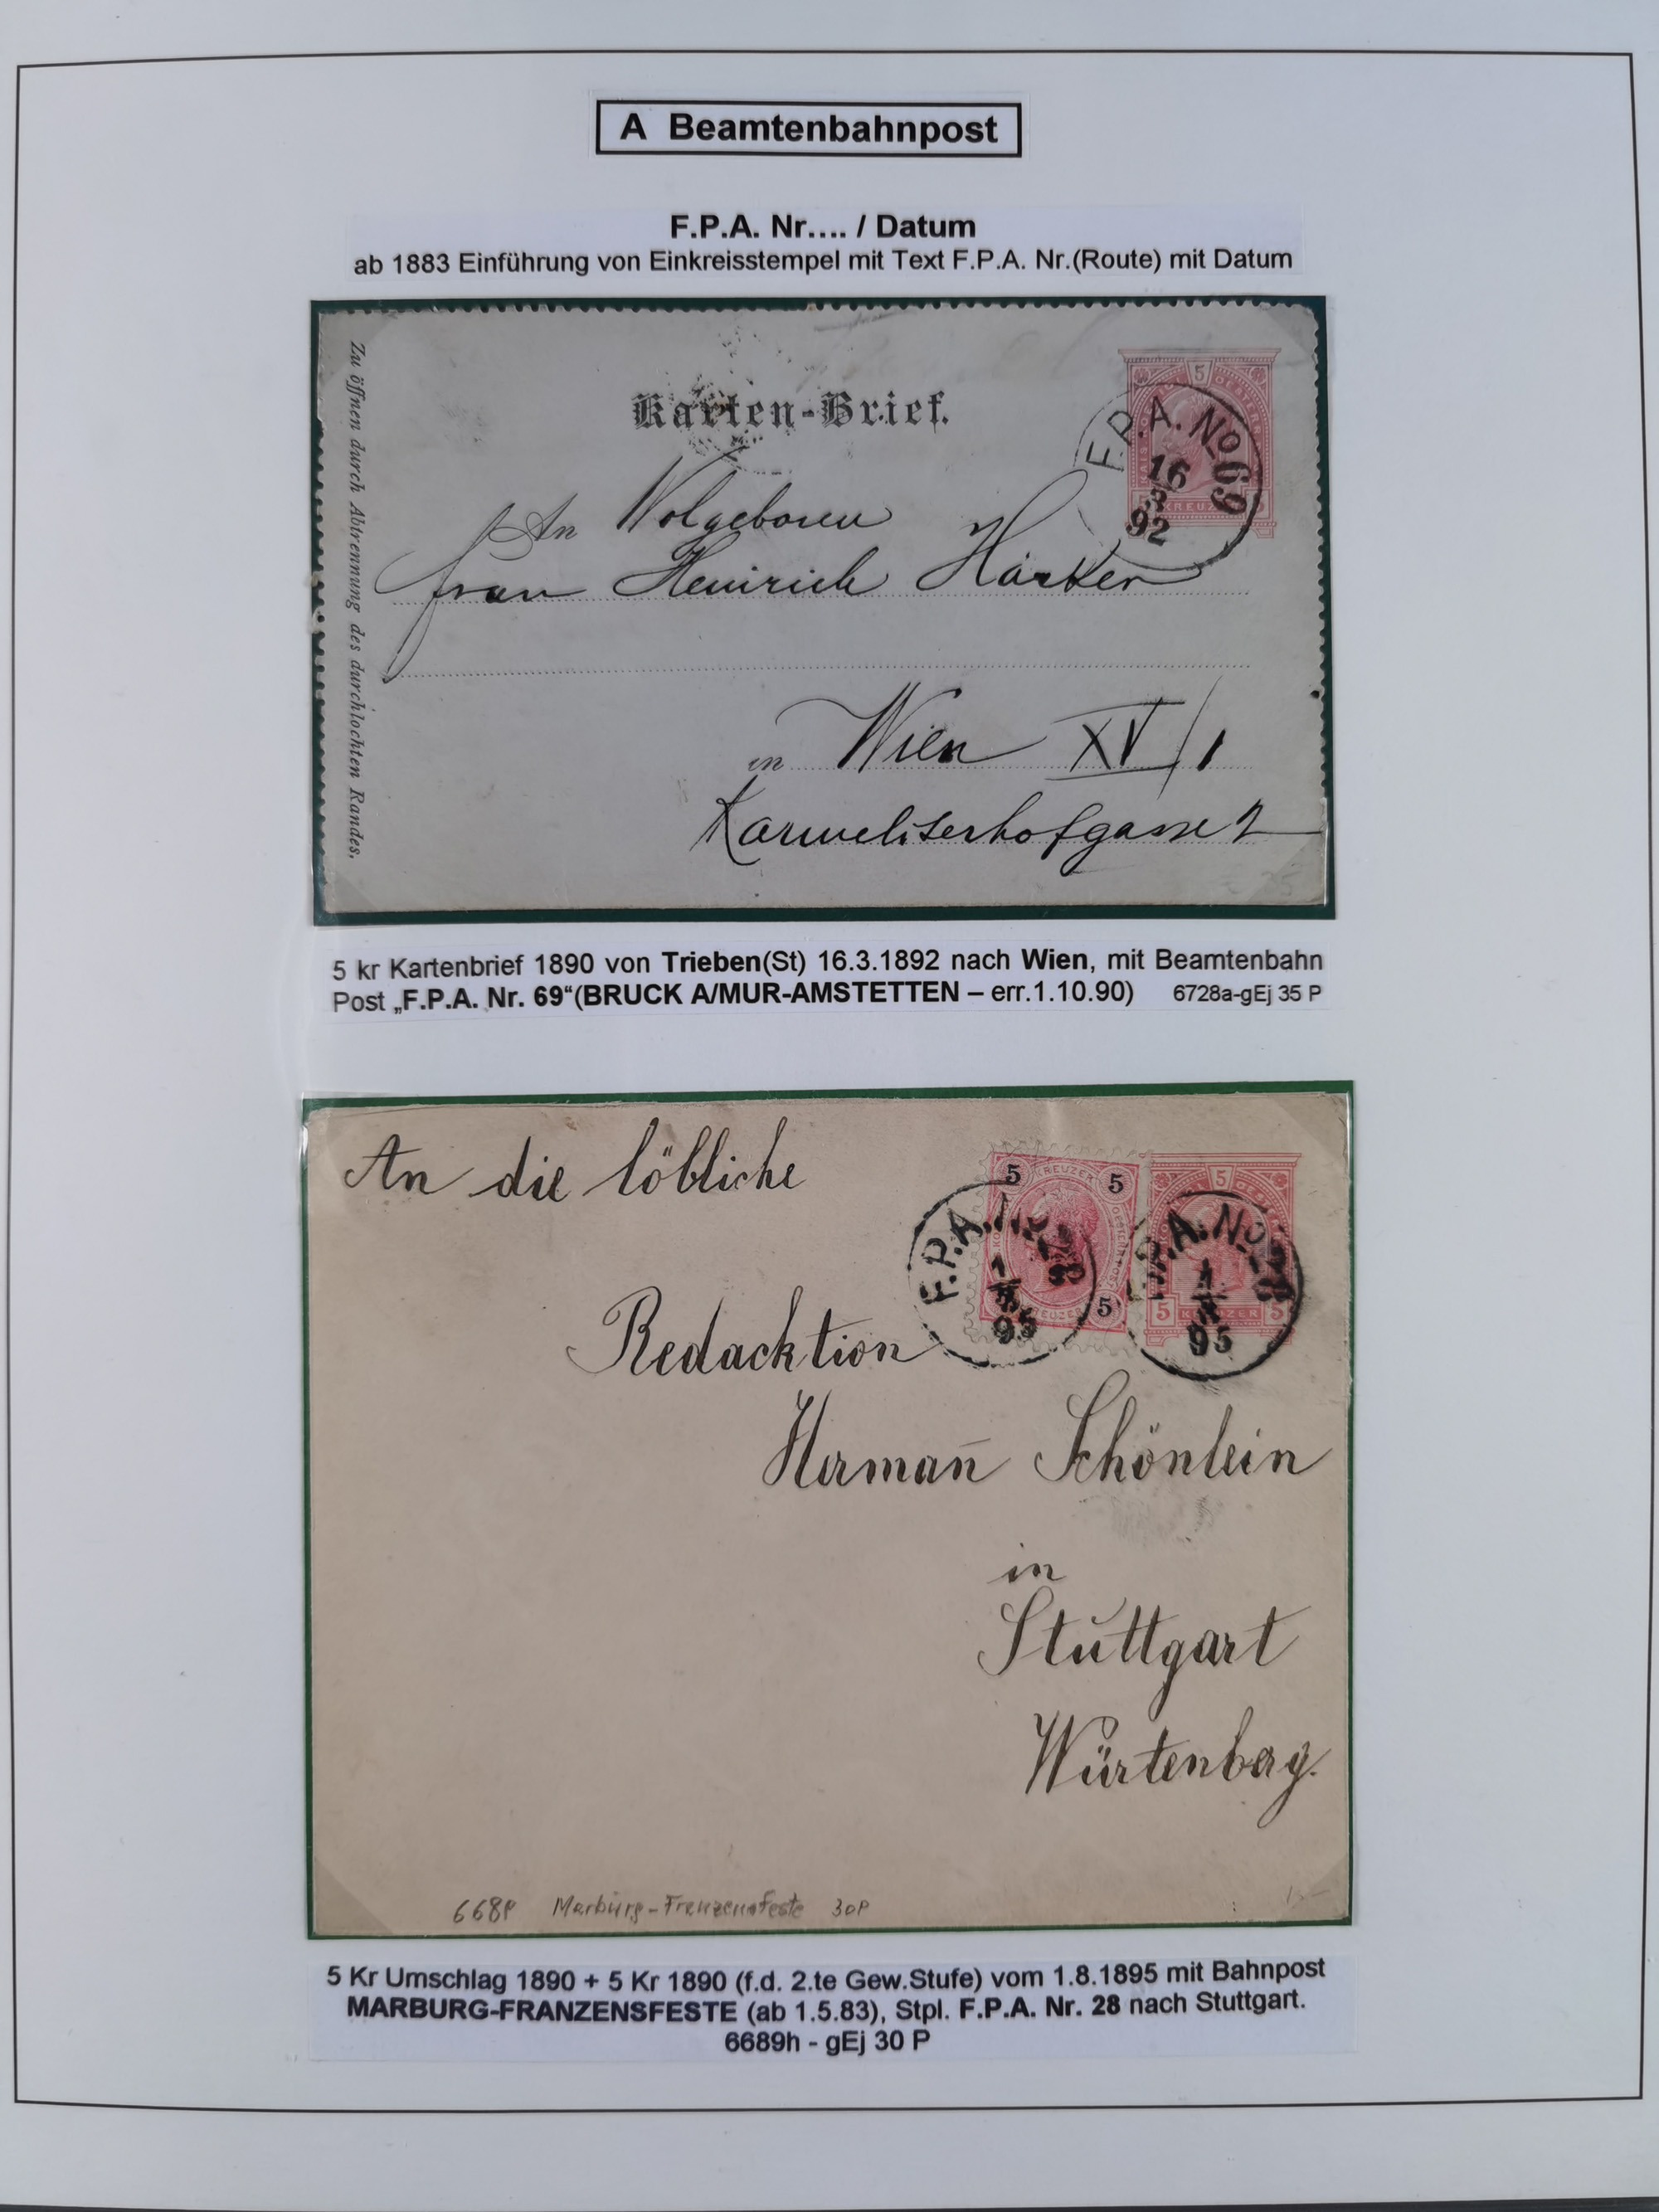 A Beamtenbahnpost
F.P.A. Nr.... / Datum
ab 1883 Einführung von Einkreisstempel mit Text F.P.A. Nr.(Route) mit Datum
Zu öffnen durch Abtrennung des durchlochten Randes.
Karten-Brief.
5
F.P.A. No 69
16
3
92
KREUZER
An Wolgeboren
Frau Heinrich Härker
in Wien XV/1
Karmeliterhofgasse 2
5 kr Kartenbrief 1890 von Trieben(St) 16.3.1892 nach Wien, mit Beamtenbahn
Post „F.P.A. Nr. 69“(BRUCK A/MUR-AMSTETTEN – err.1.10.90) 6728a-gEj 35 P
An die löbliche
5 KREUZER 5
5
F.P.A. No 28
1
8
95
5
F.P.A. No 28
1
8
95
5 KREUZER 5
Redacktion
Herman̄ Schönlein
in
Stuttgart
Würtenberg.
668P Marburg-Franzensfeste 30P
5 Kr Umschlag 1890 + 5 Kr 1890 (f.d. 2.te Gew.Stufe) vom 1.8.1895 mit Bahnpost
MARBURG-FRANZENSFESTE (ab 1.5.83), Stpl. F.P.A. Nr. 28 nach Stuttgart.
6689h - gEj 30 P